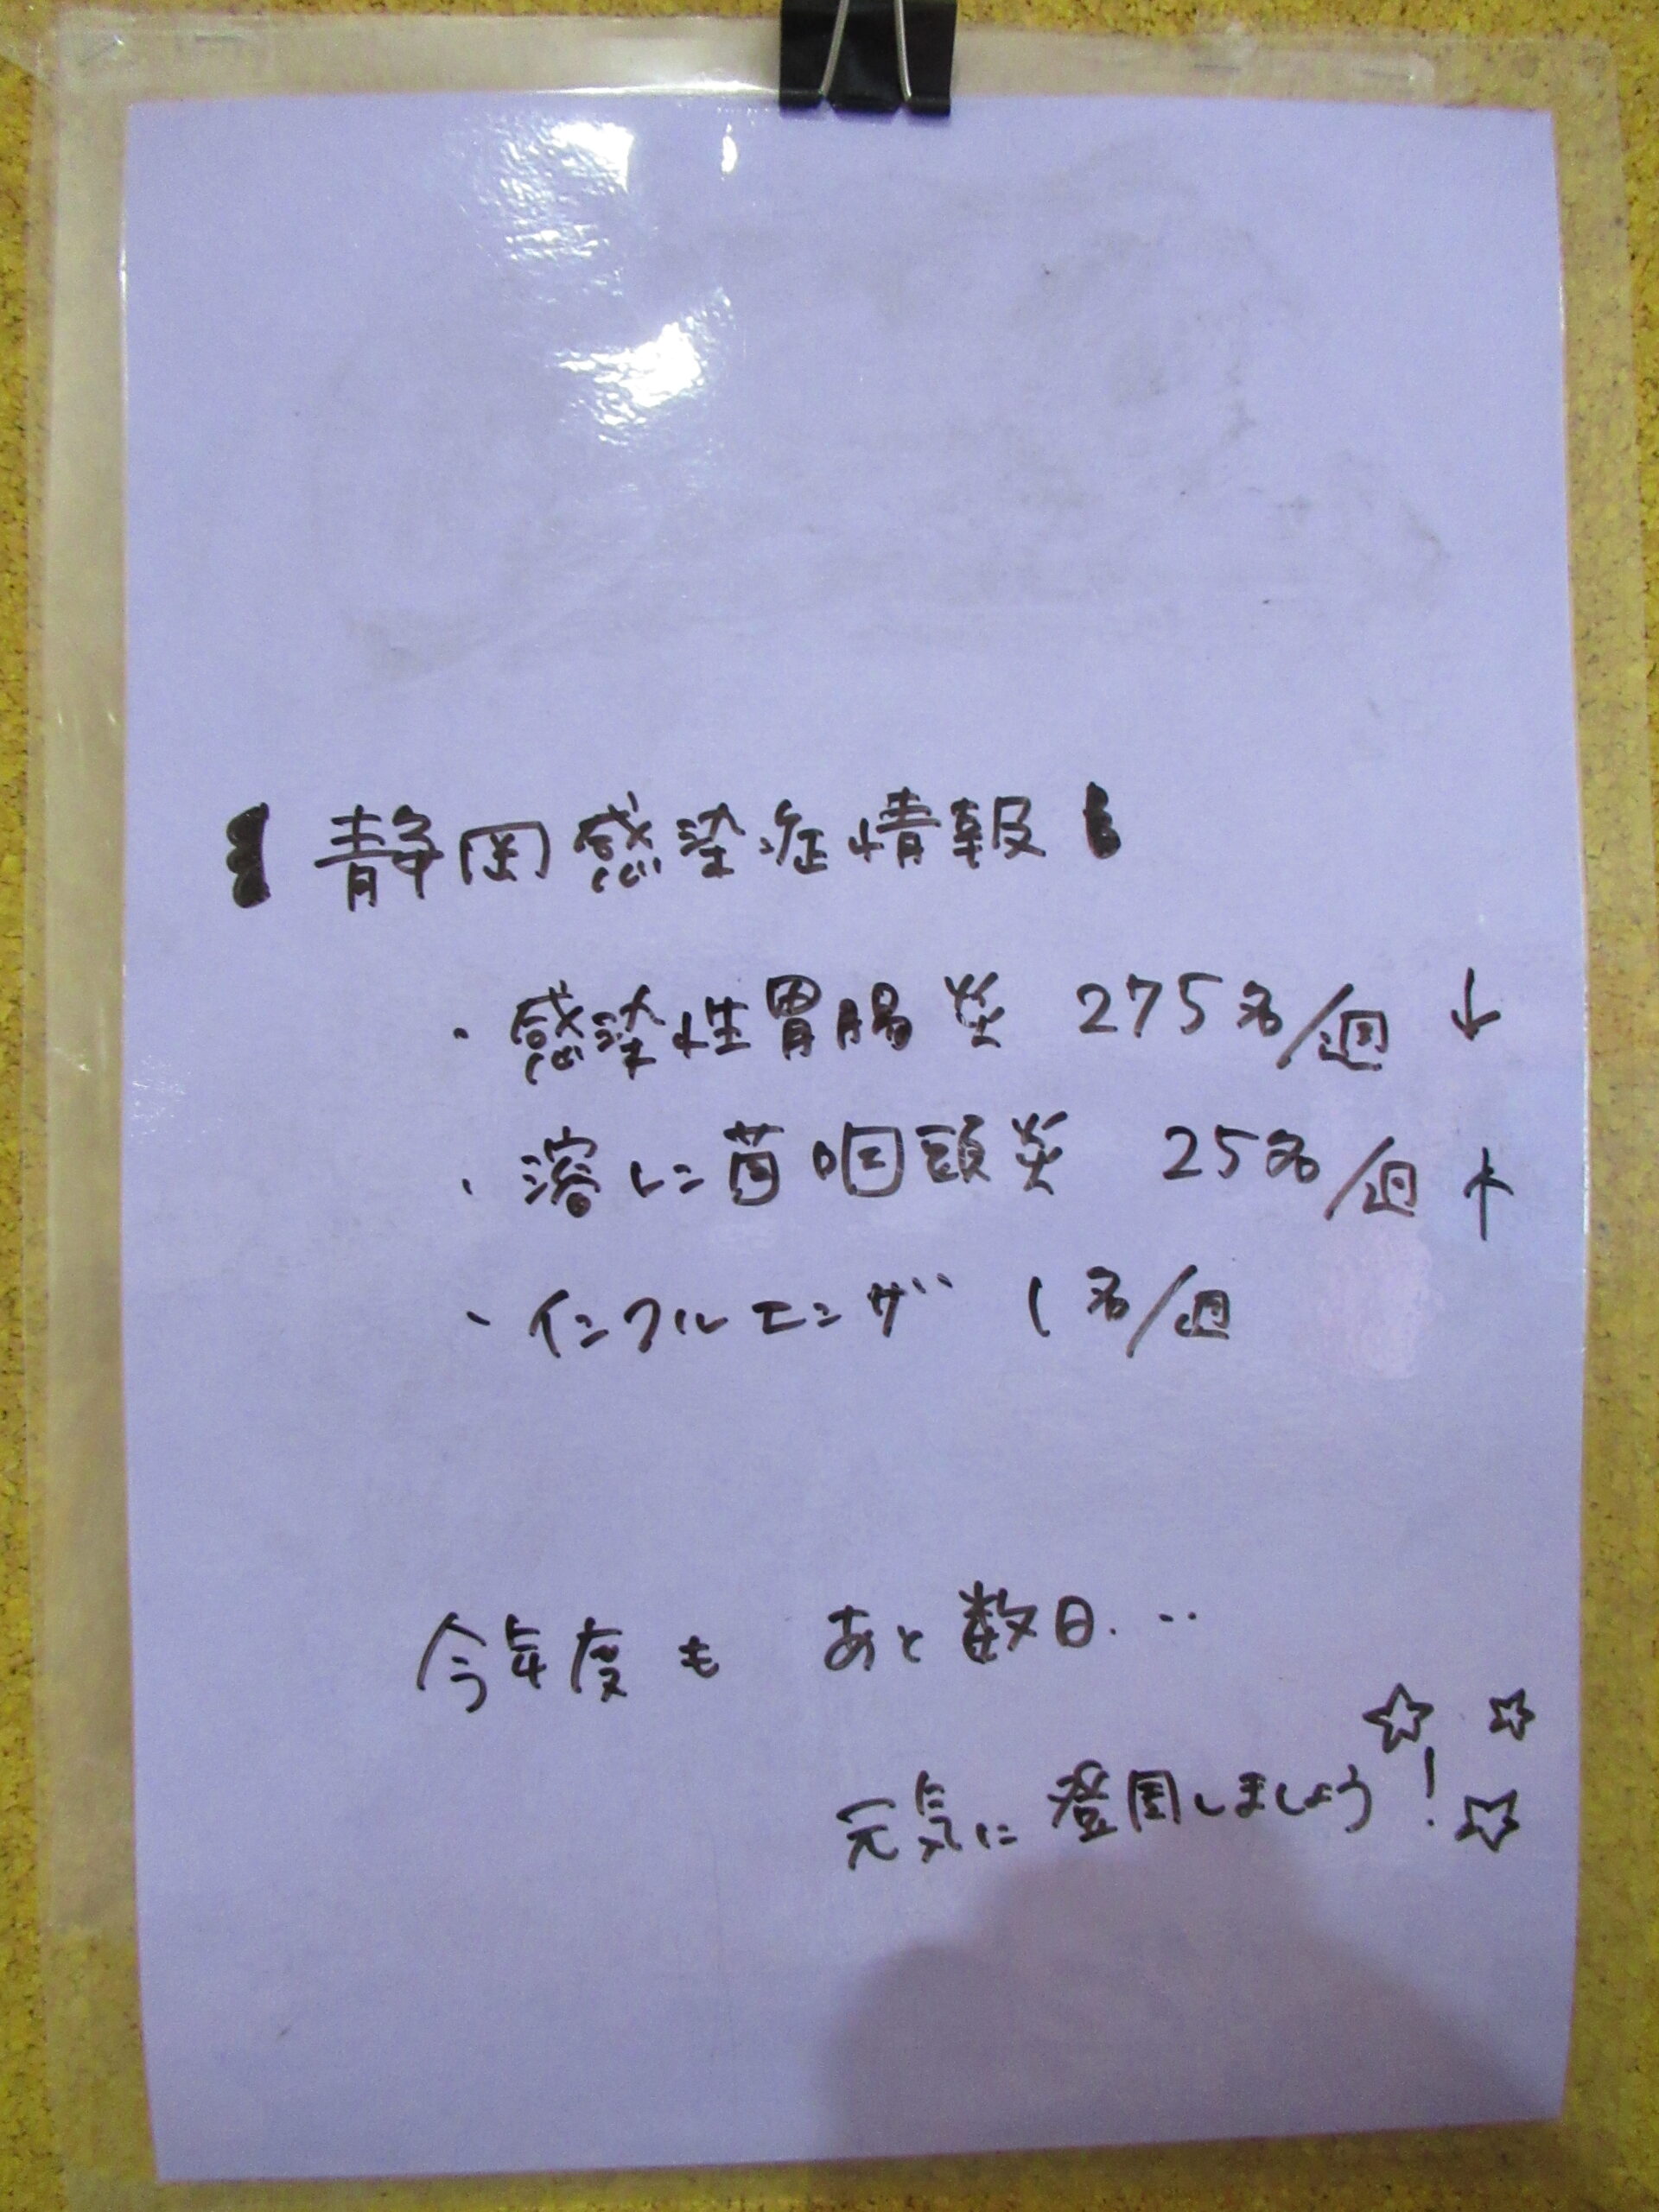 【静岡感染症情報】
・感染性胃腸炎 275名/週 ↓
・溶レン菌咽頭炎 25名/週 ↑
・インフルエンザ 1名/週
今年度も あと数日...
元気に登園しましょう!